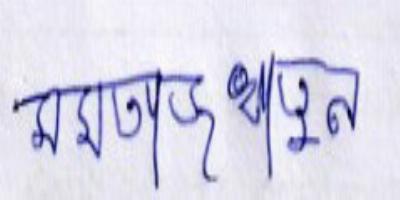 মমতাজ খাতুন